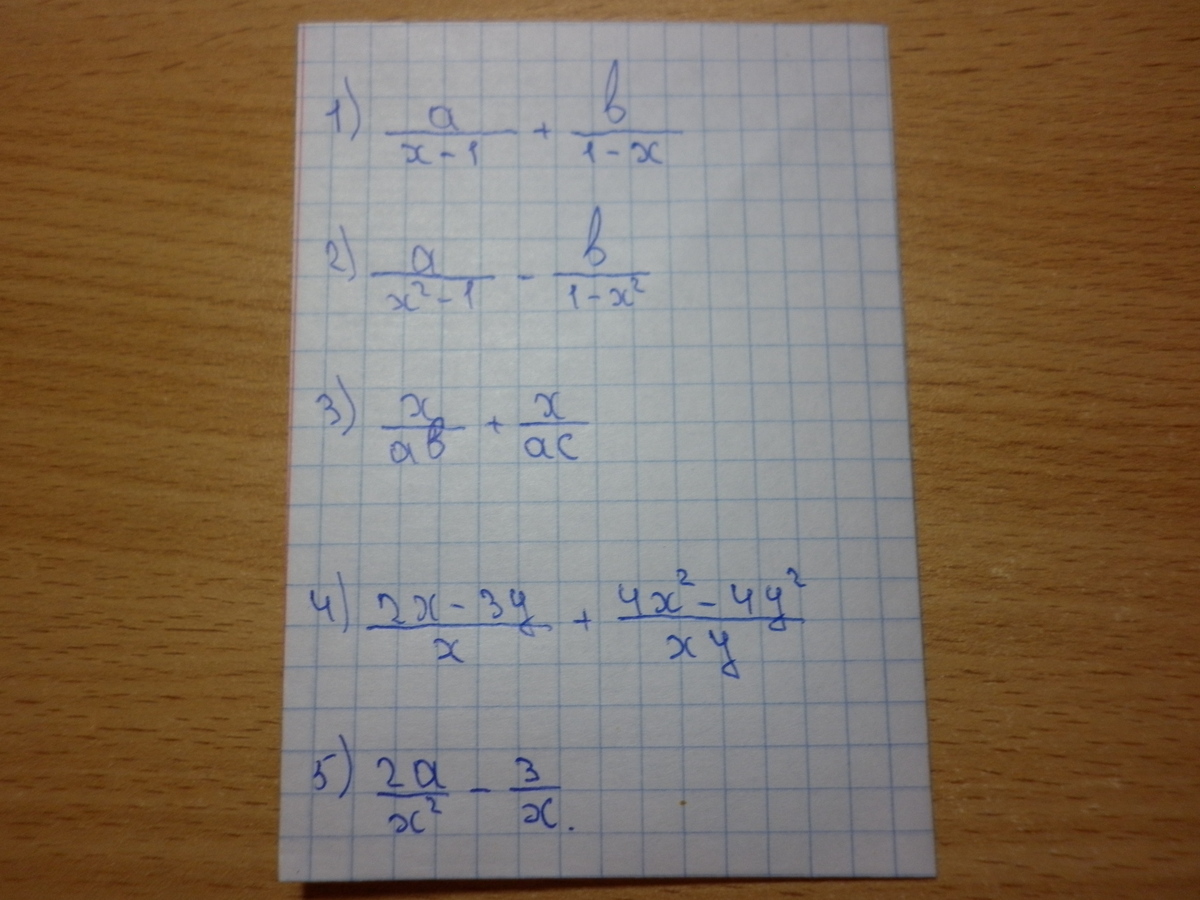 1) a/(x-1) + b/(1-x)
2) a/(x²-1) - b/(1-x²)
3) x/(ab) + x/(ac)
4) (2x-3y)/x + (4x²-4y²)/(xy)
5) 2a/x² - 3/x.